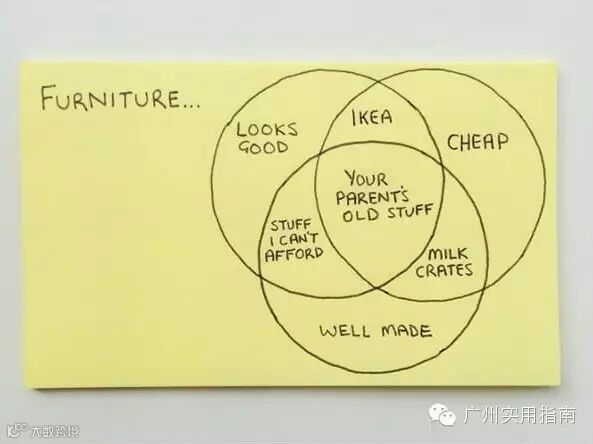 FURNITURE...
LOOKS
GOOD
IKEA
CHEAP
YOUR
PARENT'S
OLD STUFF
STUFF
I CAN'T
AFFORD
MILK
CRATES
WELL MADE
广州实用指南
大数跨境